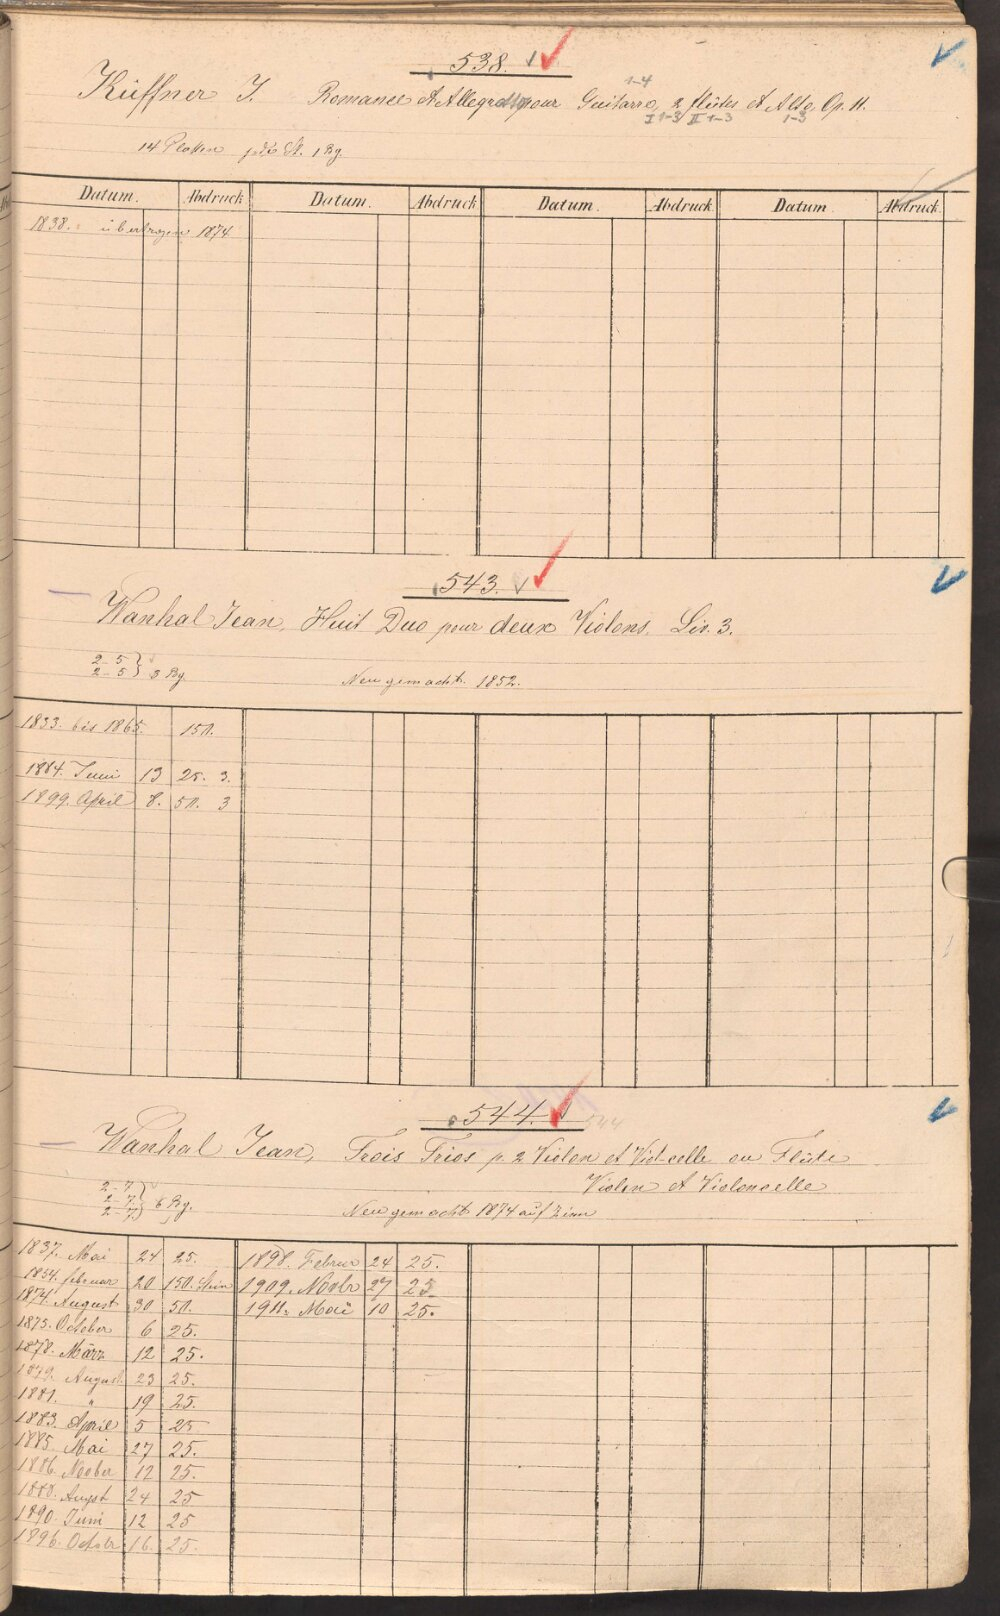 538.
Küffner J. Romance et Allegretto pour Guitarre, 2 flûtes et Alto, Op. 11.
1-4
I 1-3 II 1-3 1-3
14 Platten 1 Bg.
Datum. Abdruck Datum. Abdruck Datum. Abdruck Datum Abdruck
1838. übertragen 1874
543.
Wanhal Jean, Huit Duo pour deux Violons. Liv. 3.
2-5
2-5 } 3 Bg.
Neu gemacht. 1852.
1833. bis 1865. 150.
1884. Juni 13 25. 3.
1899. April 8. 50. 3
544. 544
Wanhal Jean, Trois Trios p. 2 Violon et Viol-celle ou Flûte
Violon et Violoncelle
2-7
2-7
2-7 } 6 Bg.
Neu gemacht 1874 auf Zinn
1837. Mai 24 25. 1898. Februar 24 25.
1854. februar 20 150. Stein 1909. Novbr 27 25
1874. August 30 50. 1911. Mai 10 25.
1875. October 6 25.
1878. März 12 25.
1879. August 23 25.
1881. " 19 25.
1883. April 5 25
1885. Mai 27 25.
1886. Novber 12 25.
1888. Augst 24 25
1890. Juni 12 25
1896. Octobr 16. 25.